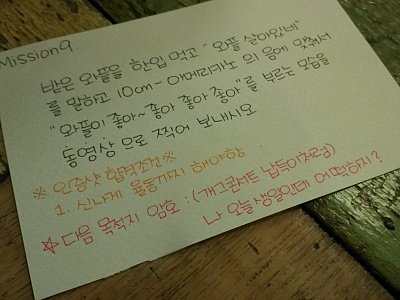 Mission 9
받은 와플을 한입 먹고 "와플 살아있네"
를 말하고 10cm - 아메리카노 의 음에 맞춰서
"와플이 좋아~ 좋아 좋아 좋아" 를 부르는 모습을
동영상으로 찍어 보내시오
※ 인증샷 합격조건※
1. 신나게 율동까지 해야함
☆ 다음 목적지 암호 : (개그콘서트 납득이처럼)
나 오늘 생일인데 어떡하지?